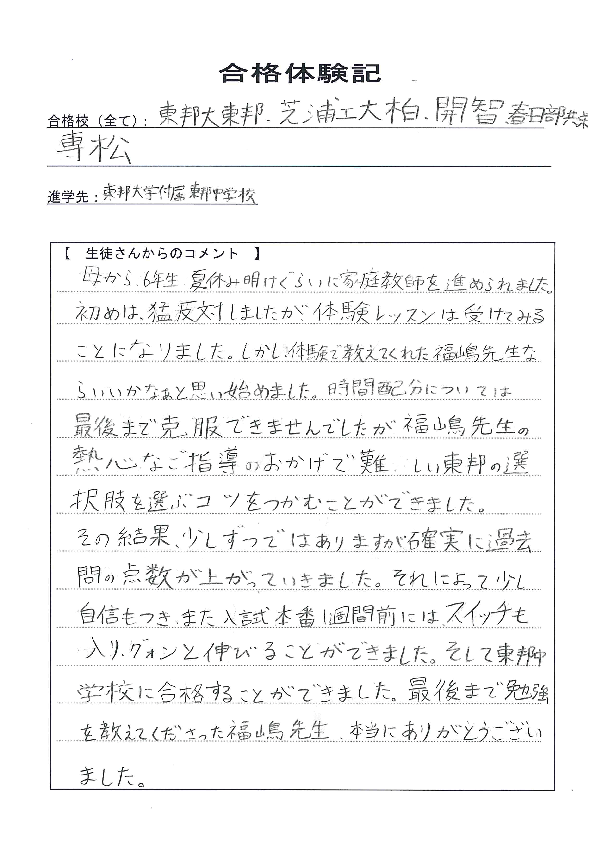 合格体験記
合格校（全て）：東邦大東邦、芝浦工大柏、開智春日部共栄
専松
進学先：東邦大学付属東邦中学校
【 生徒さんからのコメント 】
母から、6年生、夏休み明けぐらいに家庭教師を進められました。
初めは、猛反対しましたが体験レッスンは受けてみる
ことになりました。しかし、体験で教えてくれた福嶋先生な
らいいかなぁと思い始めました。時間配分については
最後まで克服できませんでしたが福嶋先生の
熱心なご指導のおかげで難しい東邦の選
択肢を選ぶコツをつかむことができました。
その結果、少しずつではありますが確実に過去
問の点数が上がっていきました。それによって少し
自信もつき、また入試本番1週間前には、スイッチも
入り、グォンと伸びることができました。そして東邦中
学校に合格することができました。最後まで勉強
を教えてくださった福嶋先生、本当にありがとうござい
ました。